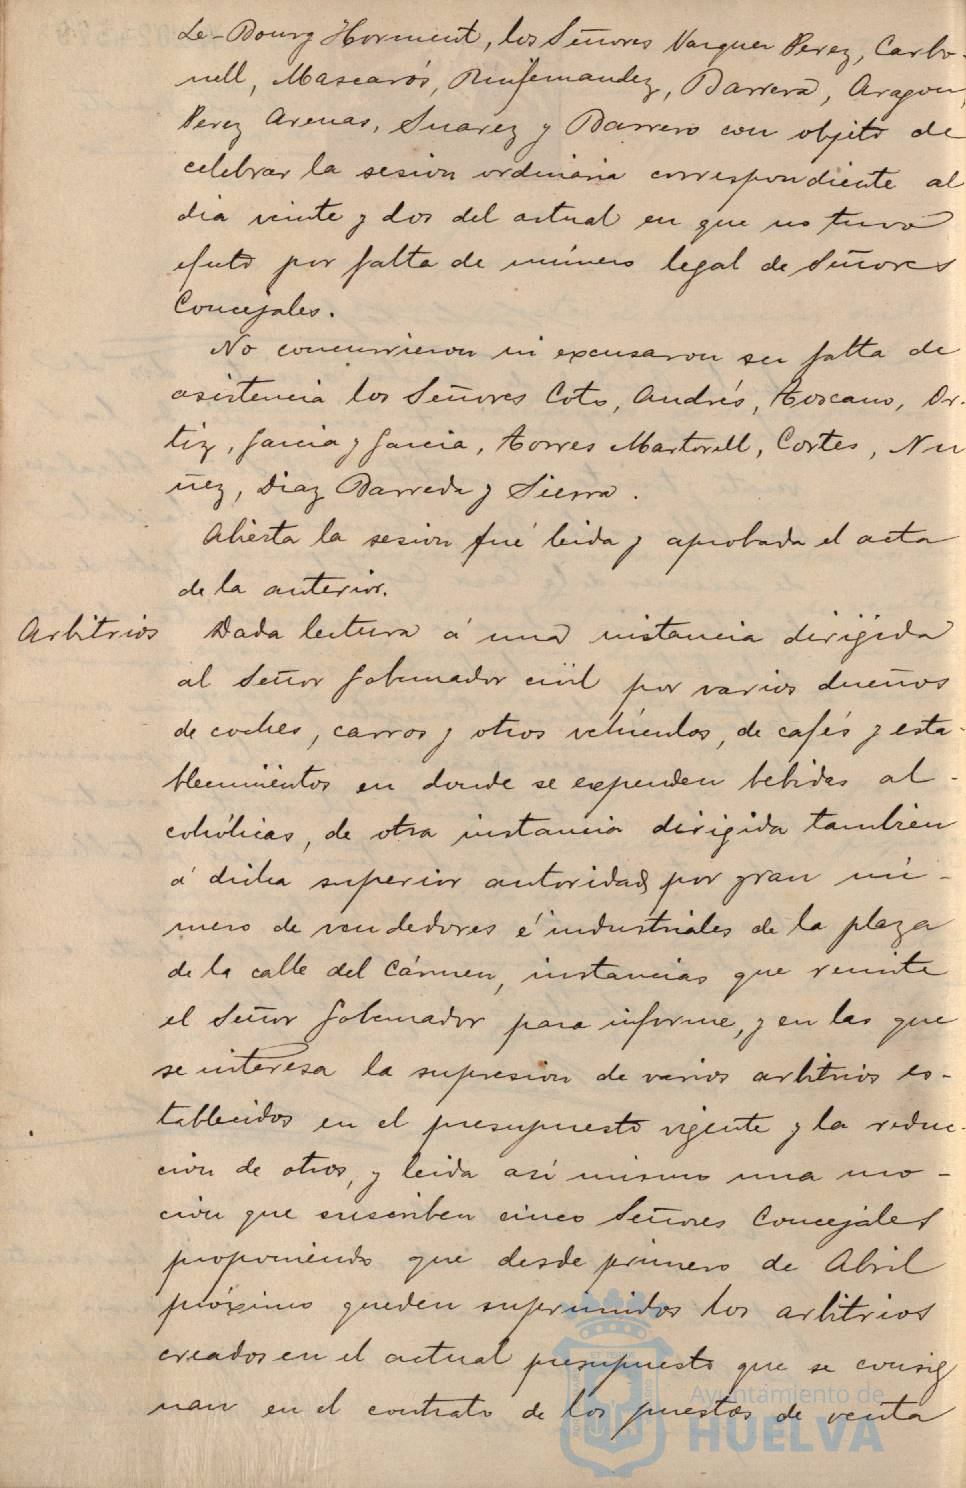 Le-Bourg Horment, los Señores Vazquez Perez, Carbo-
nell, Mascarós, Ruifernandez, Barrera, Aragon,
Perez Arenas, Suarez y Barrero con objeto de
celebrar la sesion ordinaria correspondiente al
dia veinte y dos del actual en que no tuvo
efecto por falta de número legal de Señores
Concejales.
No concurrieron ni excusaron su falta de
asistencia los Señores Coto, Andrés, Toscano, Or-
tiz, Garcia y Garcia, Torres Martorell, Cortes, Nu
ñez, Diaz Barreda y Sierra.
Abierta la sesion fué leida y aprobada el acta
de la anterior.
Arbitrios
Dada lectura á una instancia dirijida
al Señor Gobernador civil por varios dueños
de coches, carros y otros vehículos, de cafés y esta-
blecimientos en donde se expenden bebidas al-
cohólicas, de otra instancia dirigida tambien
á dicha superior autoridad por gran nú-
mero de vendedores é industriales de la plaza
de la calle del Cármen, instancias que remite
el Señor Gobernador para informe, y en las que
se interesa la supresion de varios arbitrios es-
tablecidos en el presupuesto vigente y la reduc-
cion de otros, y leida asi mismo una mo-
cion que suscriben cinco Señores Concejales
proponiendo que desde primero de Abril
próximo queden suprimidos los arbitrios
creados en el actual presupuesto que se consig
nan en el contrato de los puestos de venta
Ayuntamiento de
HUELVA